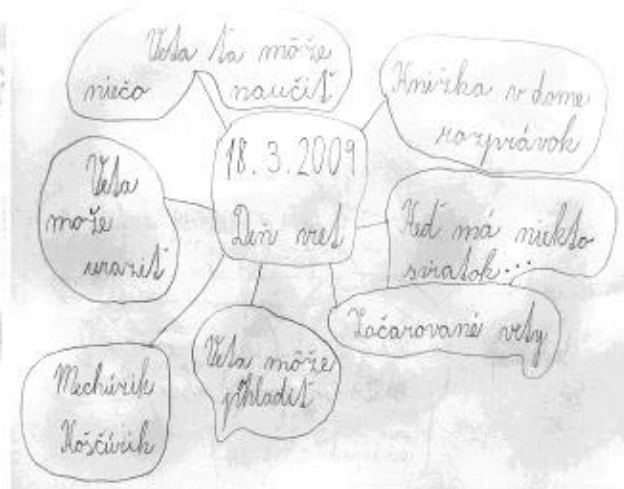 Veta ťa môže
niečo naučiť
Knižka v dome
rozprávok
18.3.2009
Deň viet
Veta
može
uraziť
Keď má niekto
sviatok...
Začarované vety
Veta môže
pohladiť
Mechúrik
Koščúrik